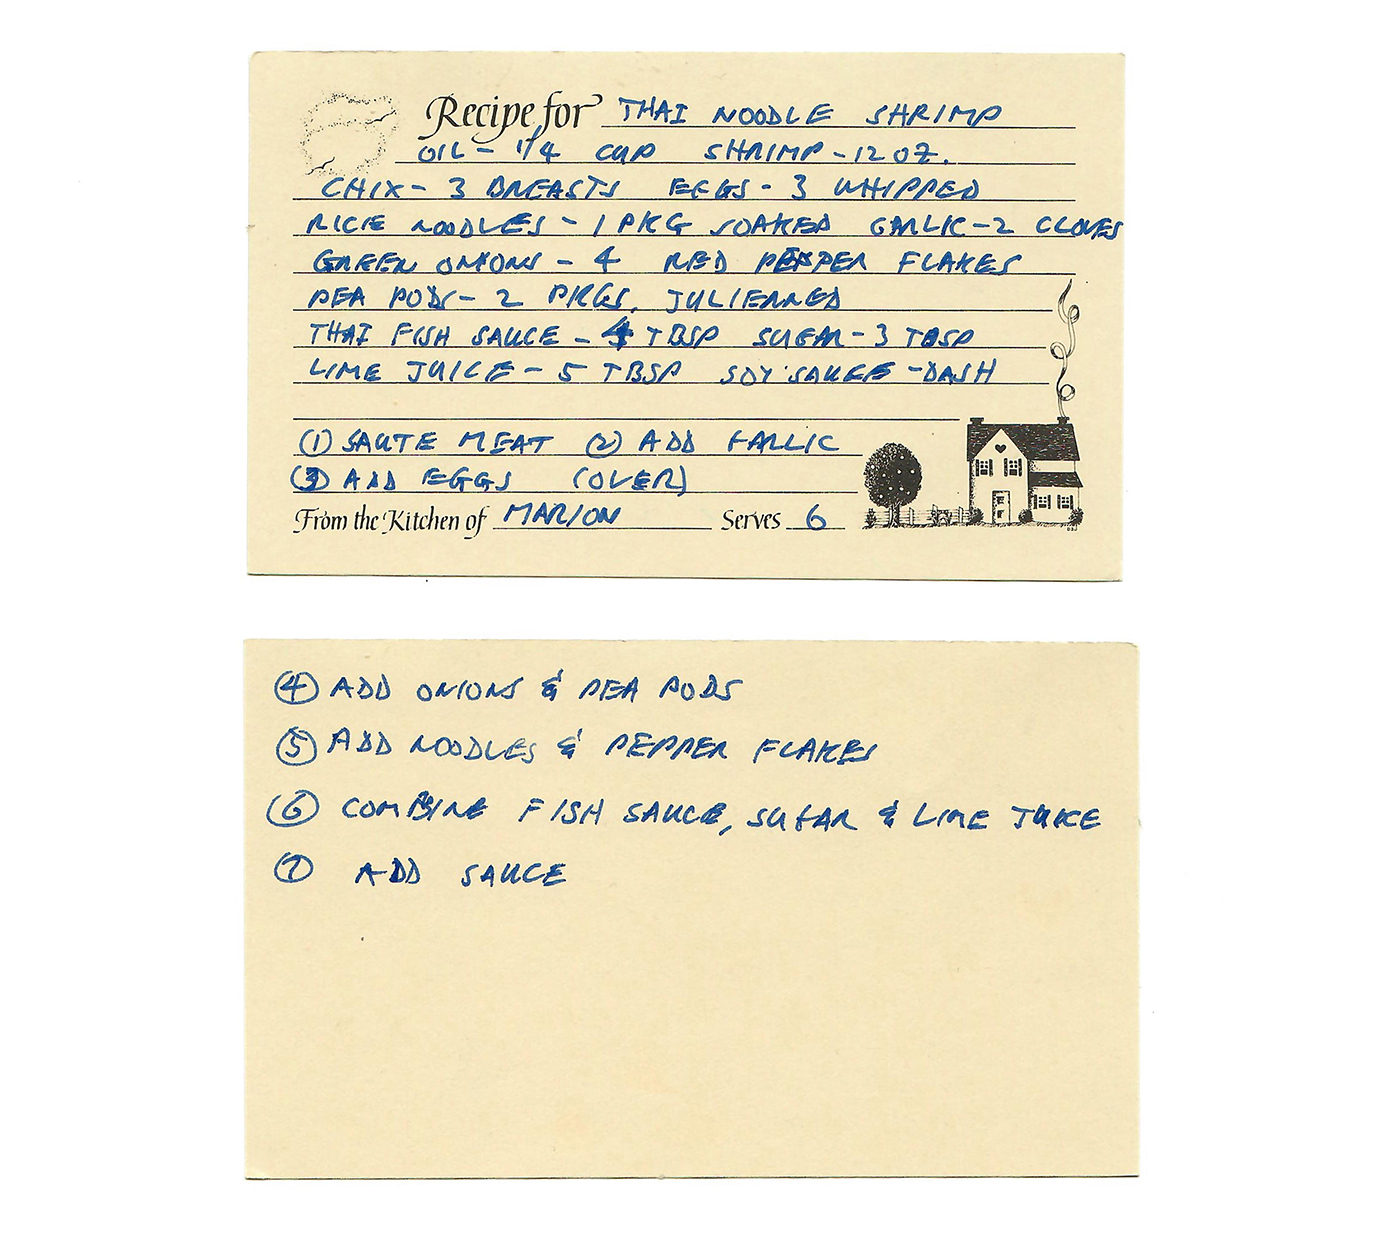 Recipe for THAI NOODLE SHRIMP
OIL - 1/4 CUP SHRIMP - 12 OZ.
CHIX - 3 BREASTS EGGS - 3 WHIPPED
RICE NOODLES - 1 PKG SOAKED GARLIC - 2 CLOVES
GREEN ONIONS - 4 RED PEPPER FLAKES
PEA PODS - 2 PKGS, JULIENNED
THAI FISH SAUCE - 4 TBSP SUGAR - 3 TBSP
LIME JUICE - 5 TBSP SOY SAUCE - DASH
(1) SAUTE MEAT (2) ADD GARLIC
(3) ADD EGGS (OVER)
From the Kitchen of MARION Serves 6
(4) ADD ONIONS & PEA PODS
(5) ADD NOODLES & PEPPER FLAKES
(6) COMBINE FISH SAUCE, SUGAR & LIME JUICE
(7) ADD SAUCE